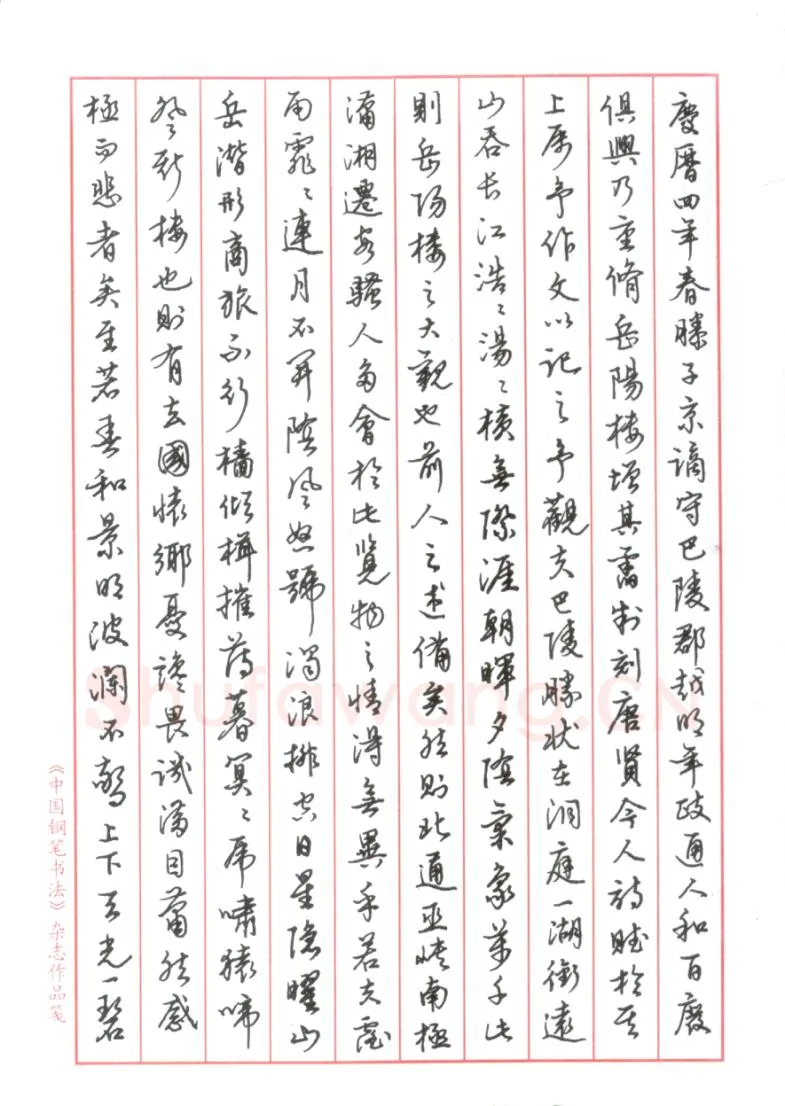 慶曆四年春滕子京謫守巴陵郡越明年政通人和百廢
俱興乃重脩岳陽樓增其舊制刻唐賢今人詩賦於其
上屬予作文以記之予觀夫巴陵勝狀在洞庭一湖銜遠
山吞長江浩々湯々橫無際涯朝暉夕陰氣象萬千此
則岳陽樓之大觀也前人之述備矣然則北通巫峽南極
瀟湘遷客騷人多會於此覽物之情得無異乎若夫霪
雨霏々連月不開陰風怒號濁浪排空日星隱曜山
岳潛形商旅不行檣傾楫摧薄暮冥々虎嘯猿啼
登斯樓也則有去國懷鄉憂讒畏譏滿目蕭然感
極而悲者矣至若春和景明波瀾不驚上下天光一碧
《中国钢笔书法》杂志作品笺
Shufawang.CN